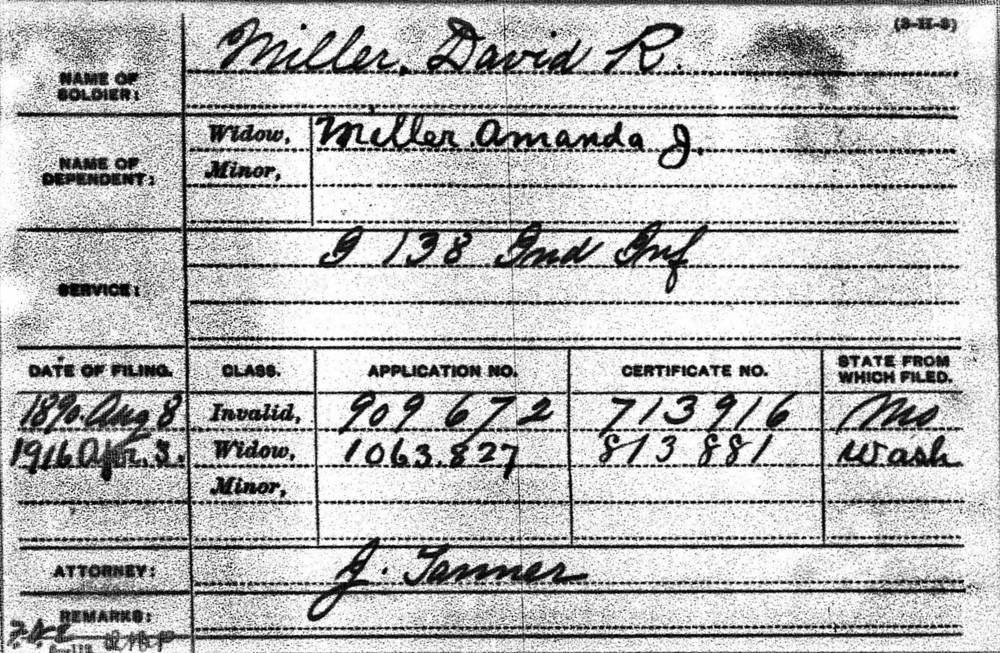 (3-II-3)
NAME OF SOLDIER: Miller, David R.
NAME OF DEPENDENT: Widow, Miller Amanda J.
Minor,
SERVICE: G 138 Ind Inf
DATE OF FILING. CLASS. APPLICATION NO. CERTIFICATE NO. STATE FROM WHICH FILED.
1890. Aug 8 Invalid, 909 672 713916 Mo
1916 Apr. 3. Widow, 1063.827 813 881 Wash
Minor,
ATTORNEY: J. Tanner
REMARKS: